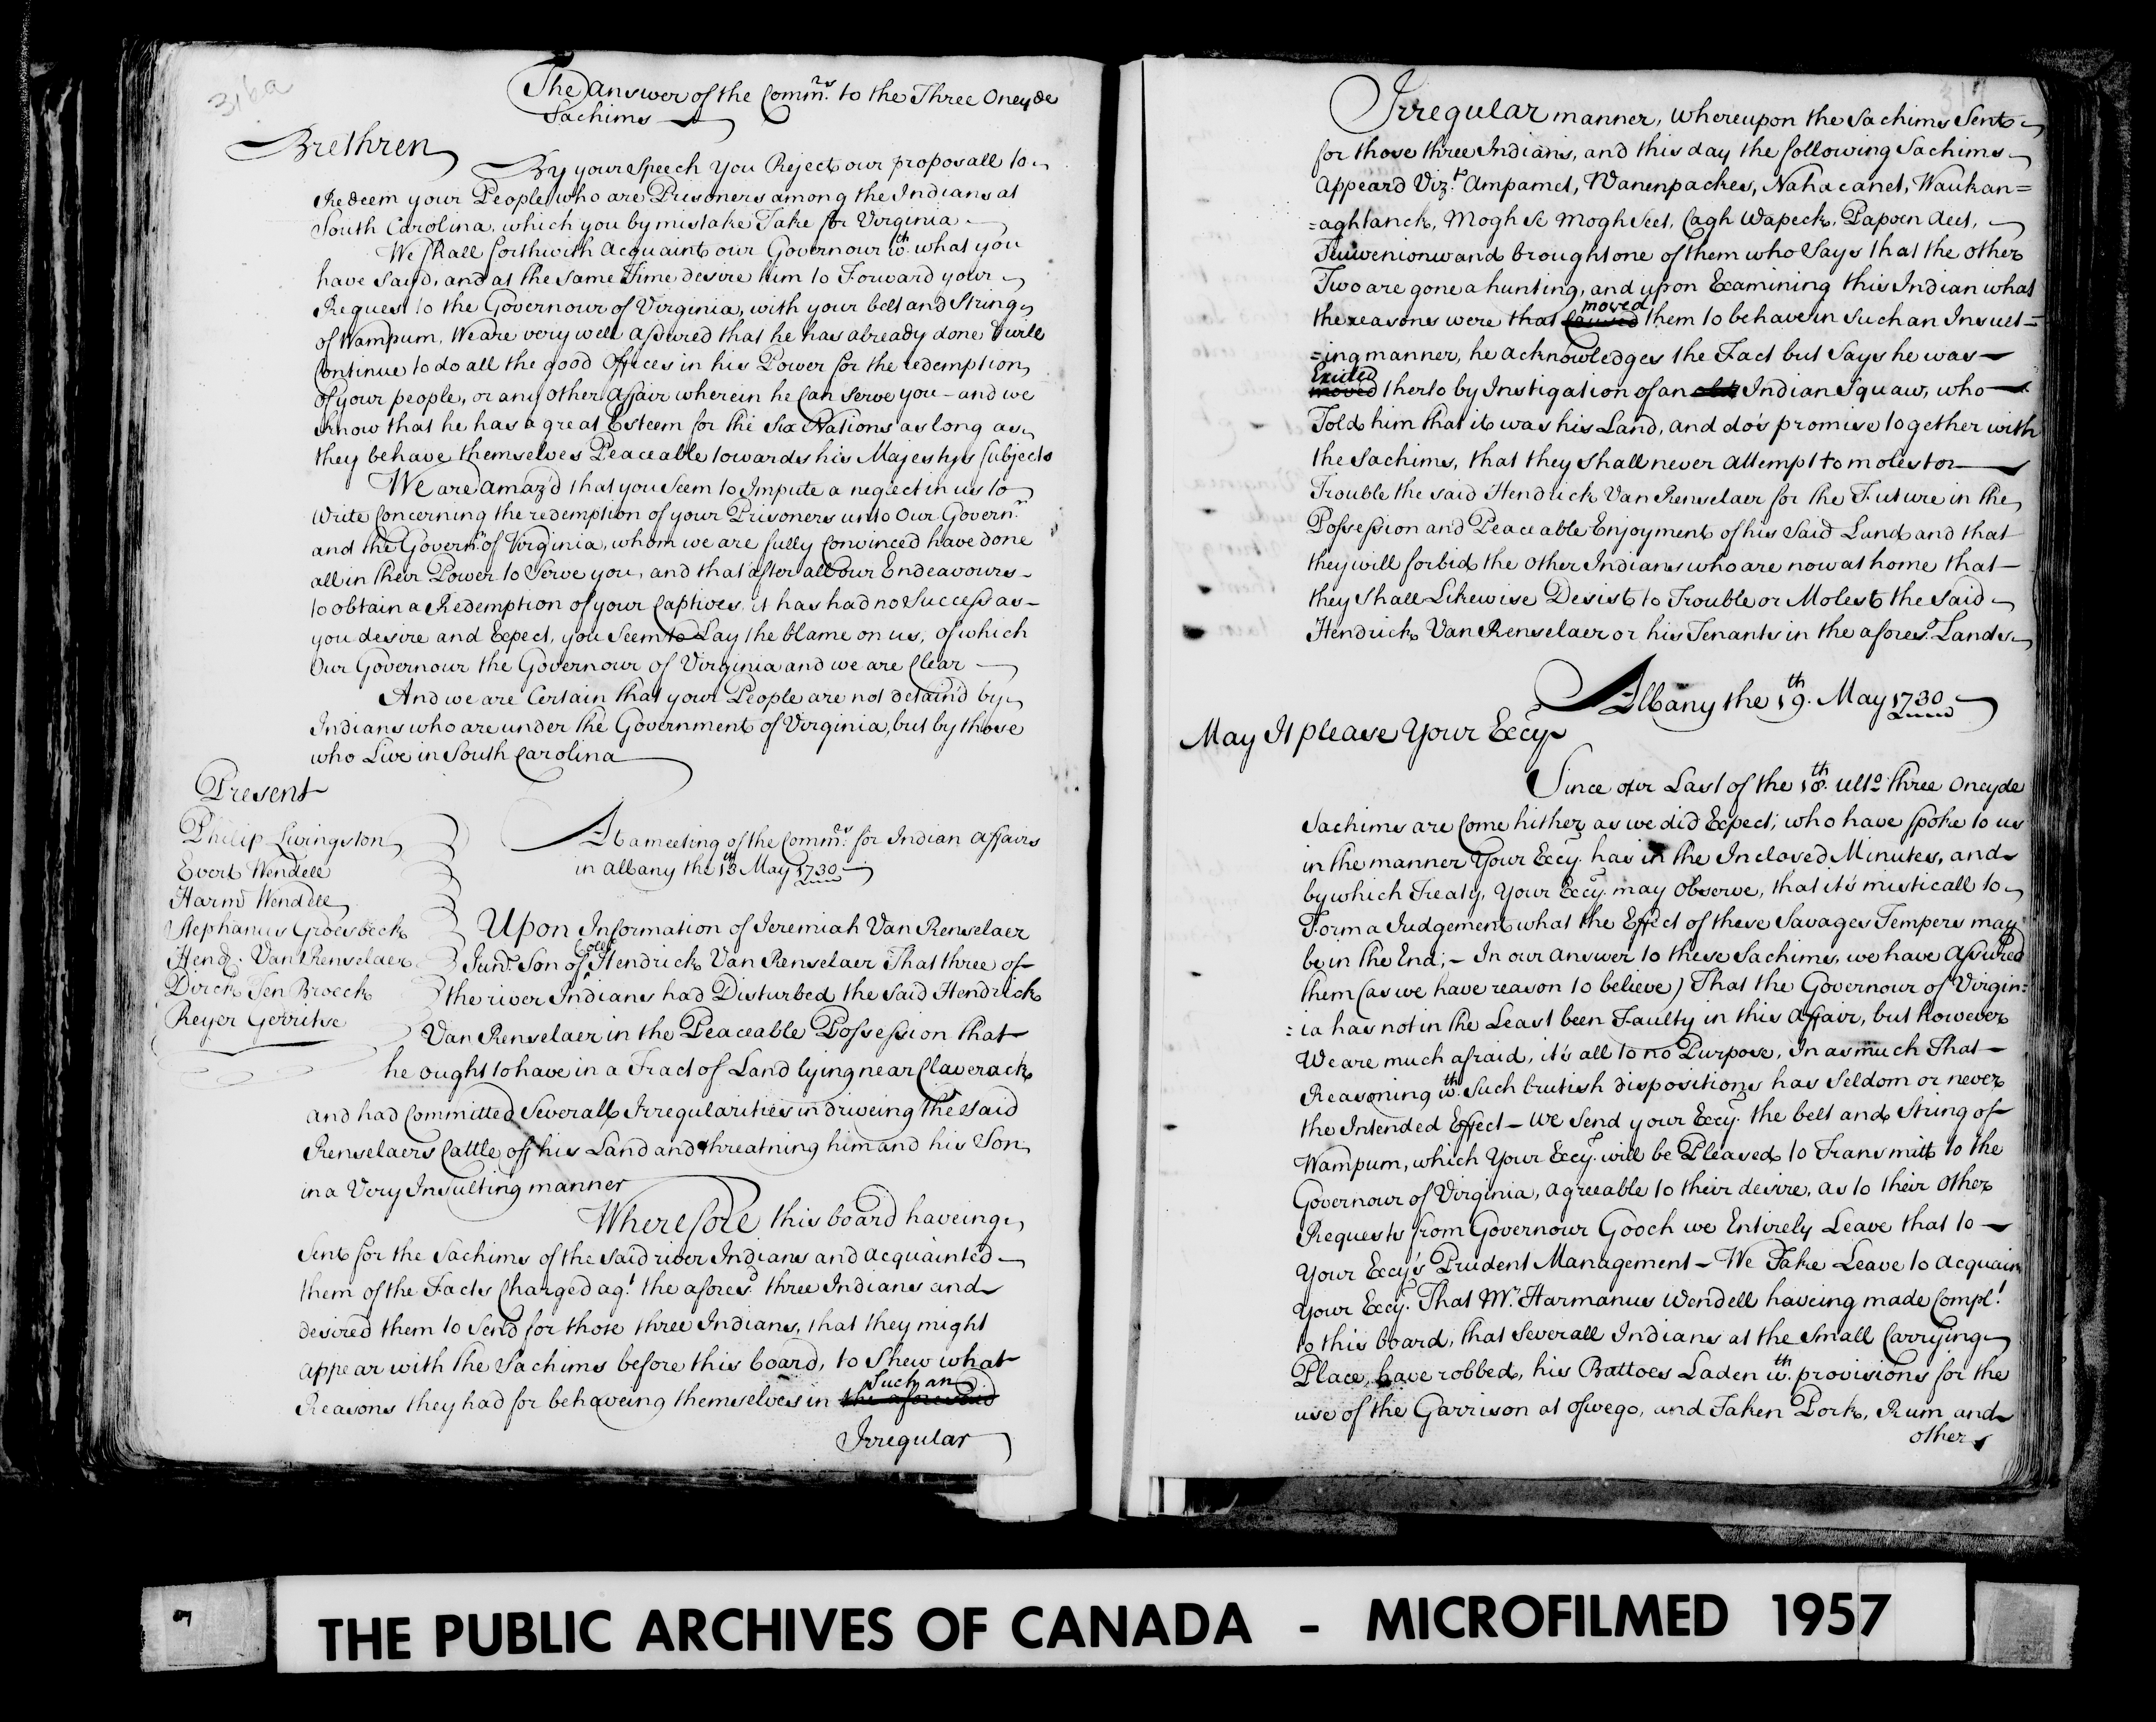 316a
The Answer of the Comm.rs to the Three Oneyde
Sachims
Brethren
By your Speech You Reject our proposall to
Redeem your People who are Prisoners among the Indians at
South Carolina, which you by mistake Take for Virginia
We shall forthwith Acquaint our Governour w.th what you
have Sayd, and at the Same Time desire him to Forward your
Request to the Governour of Virginia, with your belt and String
of Wampum, We are very well assured that he has already done & will
Continue to do all the good Offices in his Power for the redemption
of your people, or any other Affair wherein he Can Serve you - and we
know that he has a great Esteem for the Six Nations as long as
they behave themselves Peaceable towards his Majestys Subjects
We are Amaz'd that you Seem to Impute a neglect in us to
Write Concerning the redemption of your Prisoners unto Our Govern.r
and the Govern.r of Virginia, whom we are fully Convinced have done
all in their Power to Serve you, and that after all our Endeavours
to obtain a Redemption of your Captives, it has had no Success as
you desire and Expect, you Seem to Lay the blame on us, of which
Our Governour the Governour of Virginia and we are Clear
And we are Certain that your People are not detain'd by
Indians who are under the Government of Virginia, but by those
who Live in South Carolina
Present
Philip Livingston
Evert Wendell
Harm.s Wendell
Stephanus Groesbeck
Hend. Van Renselaer
Dirck Ten Broeck
Reyer Gerritse
At a meeting of the Comm.rs for Indian Affairs
in Albany the 13th May 1730
Upon Information of Jeremiah Van Renselaer
Jun.r Son of Coll Hendrick Van Renselaer That three of
the river Indians had Disturbed the Said Hendrick
Van Renselaer in the Peaceable Possession that
he ought to have in a Tract of Land lying near Claverack
and had Committed Severall Irregularities in driveing the said
Renselaers Cattle off his Land and threatning him and his Son
in a Very Insulting manner
Wherefore this board haveing
Sent for the Sachims of the Said river Indians and acquainted
them of the Facts Charged ag.t the afores.d three Indians and
desired them to Send for those three Indians, that they might
appear with the Sachims before this board, to Shew what
Such an
Reasons they had for behaveing themselves in the aforesaid
Irregular
Irregular manner, Whereupon the Sachims Sent
for those three Indians, and this day the following Sachims
Appeard Viz.t Ampamet, Wanenpackes, Nahacanet, Waukan=
=aghtanck, Mogh Sc Mogh Seet, Cagh Wapeck, Papoen Aeet,
and brought one of them who Says that the other
Two are gone a hunting, and upon Examining this Indian what
moved
the reasons were that caused them to behave in Such an Insult=
=ing manner, he acknowledges the Fact but Says he was
Exited
moved therto by Instigation of an old Indian Squaw, who
Told him that it was his Land, and do's promise together with
the Sachims, that they Shall never attempt to molest or
Trouble the said Hendrick Van Renselaer for the Future in the
Possession and Peaceable Enjoyment of his Said Land and that
they will forbid the other Indians who are now at home that
they Shall Likewise Desist to Trouble or Molest the Said
Hendrick Van Renselaer or his Tenants in the afores.d Lands
Albany the 19.th May 1730
May It please Your Eccy
Since our Last of the 18.th ult.o three Oneyde
Sachims are Come hither as we did Expect, who have Spoke to us
in the manner Your Eccy. has in the Inclosed Minutes, and
by which Treaty, Your Eccy. may Observe, that it's misticall to
Form a Judgement what the Effect of these Savages Tempers may
be in the End; - In our Answer to these Sachims, we have Assured
them (as we have reason to believe) That the Governour of Virgin=
=ia has not in the Least been Faulty in this Affair, but however
We are much afraid, it's all to no Purpose, In as much That
Reasoning w.th Such brutish dispositions has Seldom or never
the Intended Effect - We Send your Eccy. the belt and String of
Wampum, which Your Eccy. will be Pleased to Transmitt to the
Governour of Virginia, agreeable to their desire, as to their Other
Requests from Governour Gooch we Entirely Leave that to
Your Eccy's Prudent Management - We Take Leave to Acquain
your Eccy. That Mr. Harmanus Wendell haveing made Compl.t
to this board, that Severall Indians at the Small Carrying
Place, have robbed, his Battoes Laden w.th provisions for the
use of the Garrison at Oswego, and Taken Pork, Rum and
other
THE PUBLIC ARCHIVES OF CANADA - MICROFILMED 1957